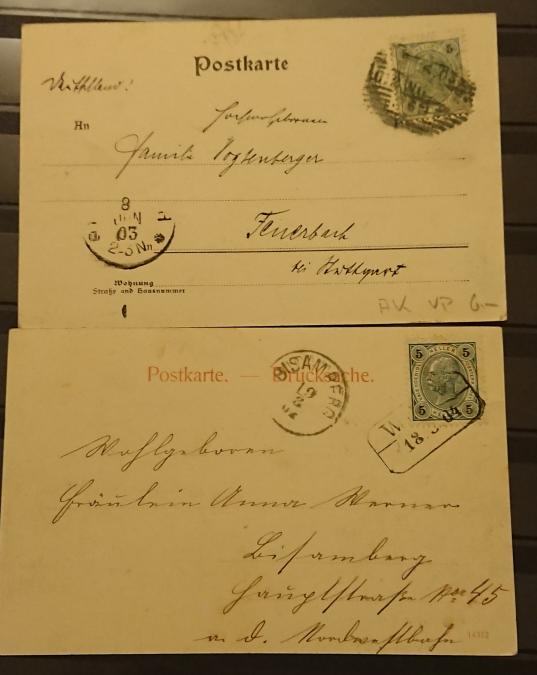 Postkarte
Deutschland!
An
Hochwohlgeboren
Familie Vogtenberger
Feuerbach
bei Stuttgart
8
JUN
03
2-3 Nm
Wohnung
Straße und Hausnummer
AK VP 6.-
5
Postkarte. — Drucksache.
BISAMBERG
19
3
04
5 HELLER 5
5 5
W
18 3 04
Wohlgeboren
Fräulein Anna Werner
Bisamberg
Hauptstraße Nro 45
a. d. Nordwestbahn
14312